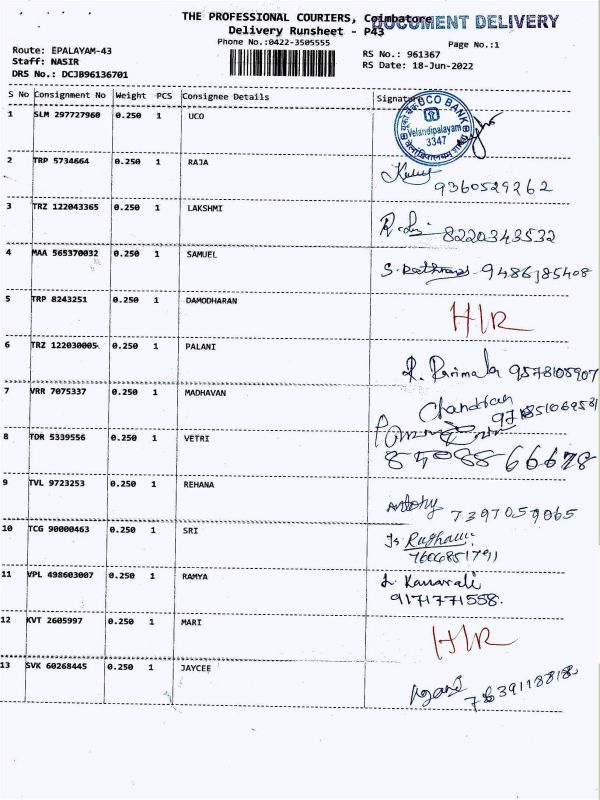 THE PROFESSIONAL COURIERS, Coimbatore
DOCUMENT DELIVERY
Delivery Runsheet - P43
Phone No.:0422-3505555
Page No.:1
Route: EPALAYAM-43
Staff: NASIR
DRS No.: DCJB96136701
RS No.: 961367
RS Date: 18-Jun-2022
S No Consignment No Weight PCS Consignee Details Signature
1 SLM 297727960 0.250 1 UCO
UCO BANK
Velandipalayam
3347
2 TRP 5734664 0.250 1 RAJA
9360529262
3 TRZ 122043365 0.250 1 LAKSHMI
8220343532
4 MAA 565370032 0.250 1 SAMUEL
9486185408
5 TRP 8243251 0.250 1 DAMODHARAN
H/R
6 TRZ 122030005 0.250 1 PALANI
R. Parimala 9578105907
7 VRR 7075337 0.250 1 MADHAVAN
Chandran
8 TDR 5339556 0.250 1 VETRI
9 TVL 9723253 0.250 1 REHANA
Antony 7397059065
10 TCG 90000463 0.250 1 SRI
7606851791
11 VPL 498603007 0.250 1 RAMYA
9171771558.
12 KVT 2605997 0.250 1 MARI
H/R
13 SVK 60268445 0.250 1 JAYCEE